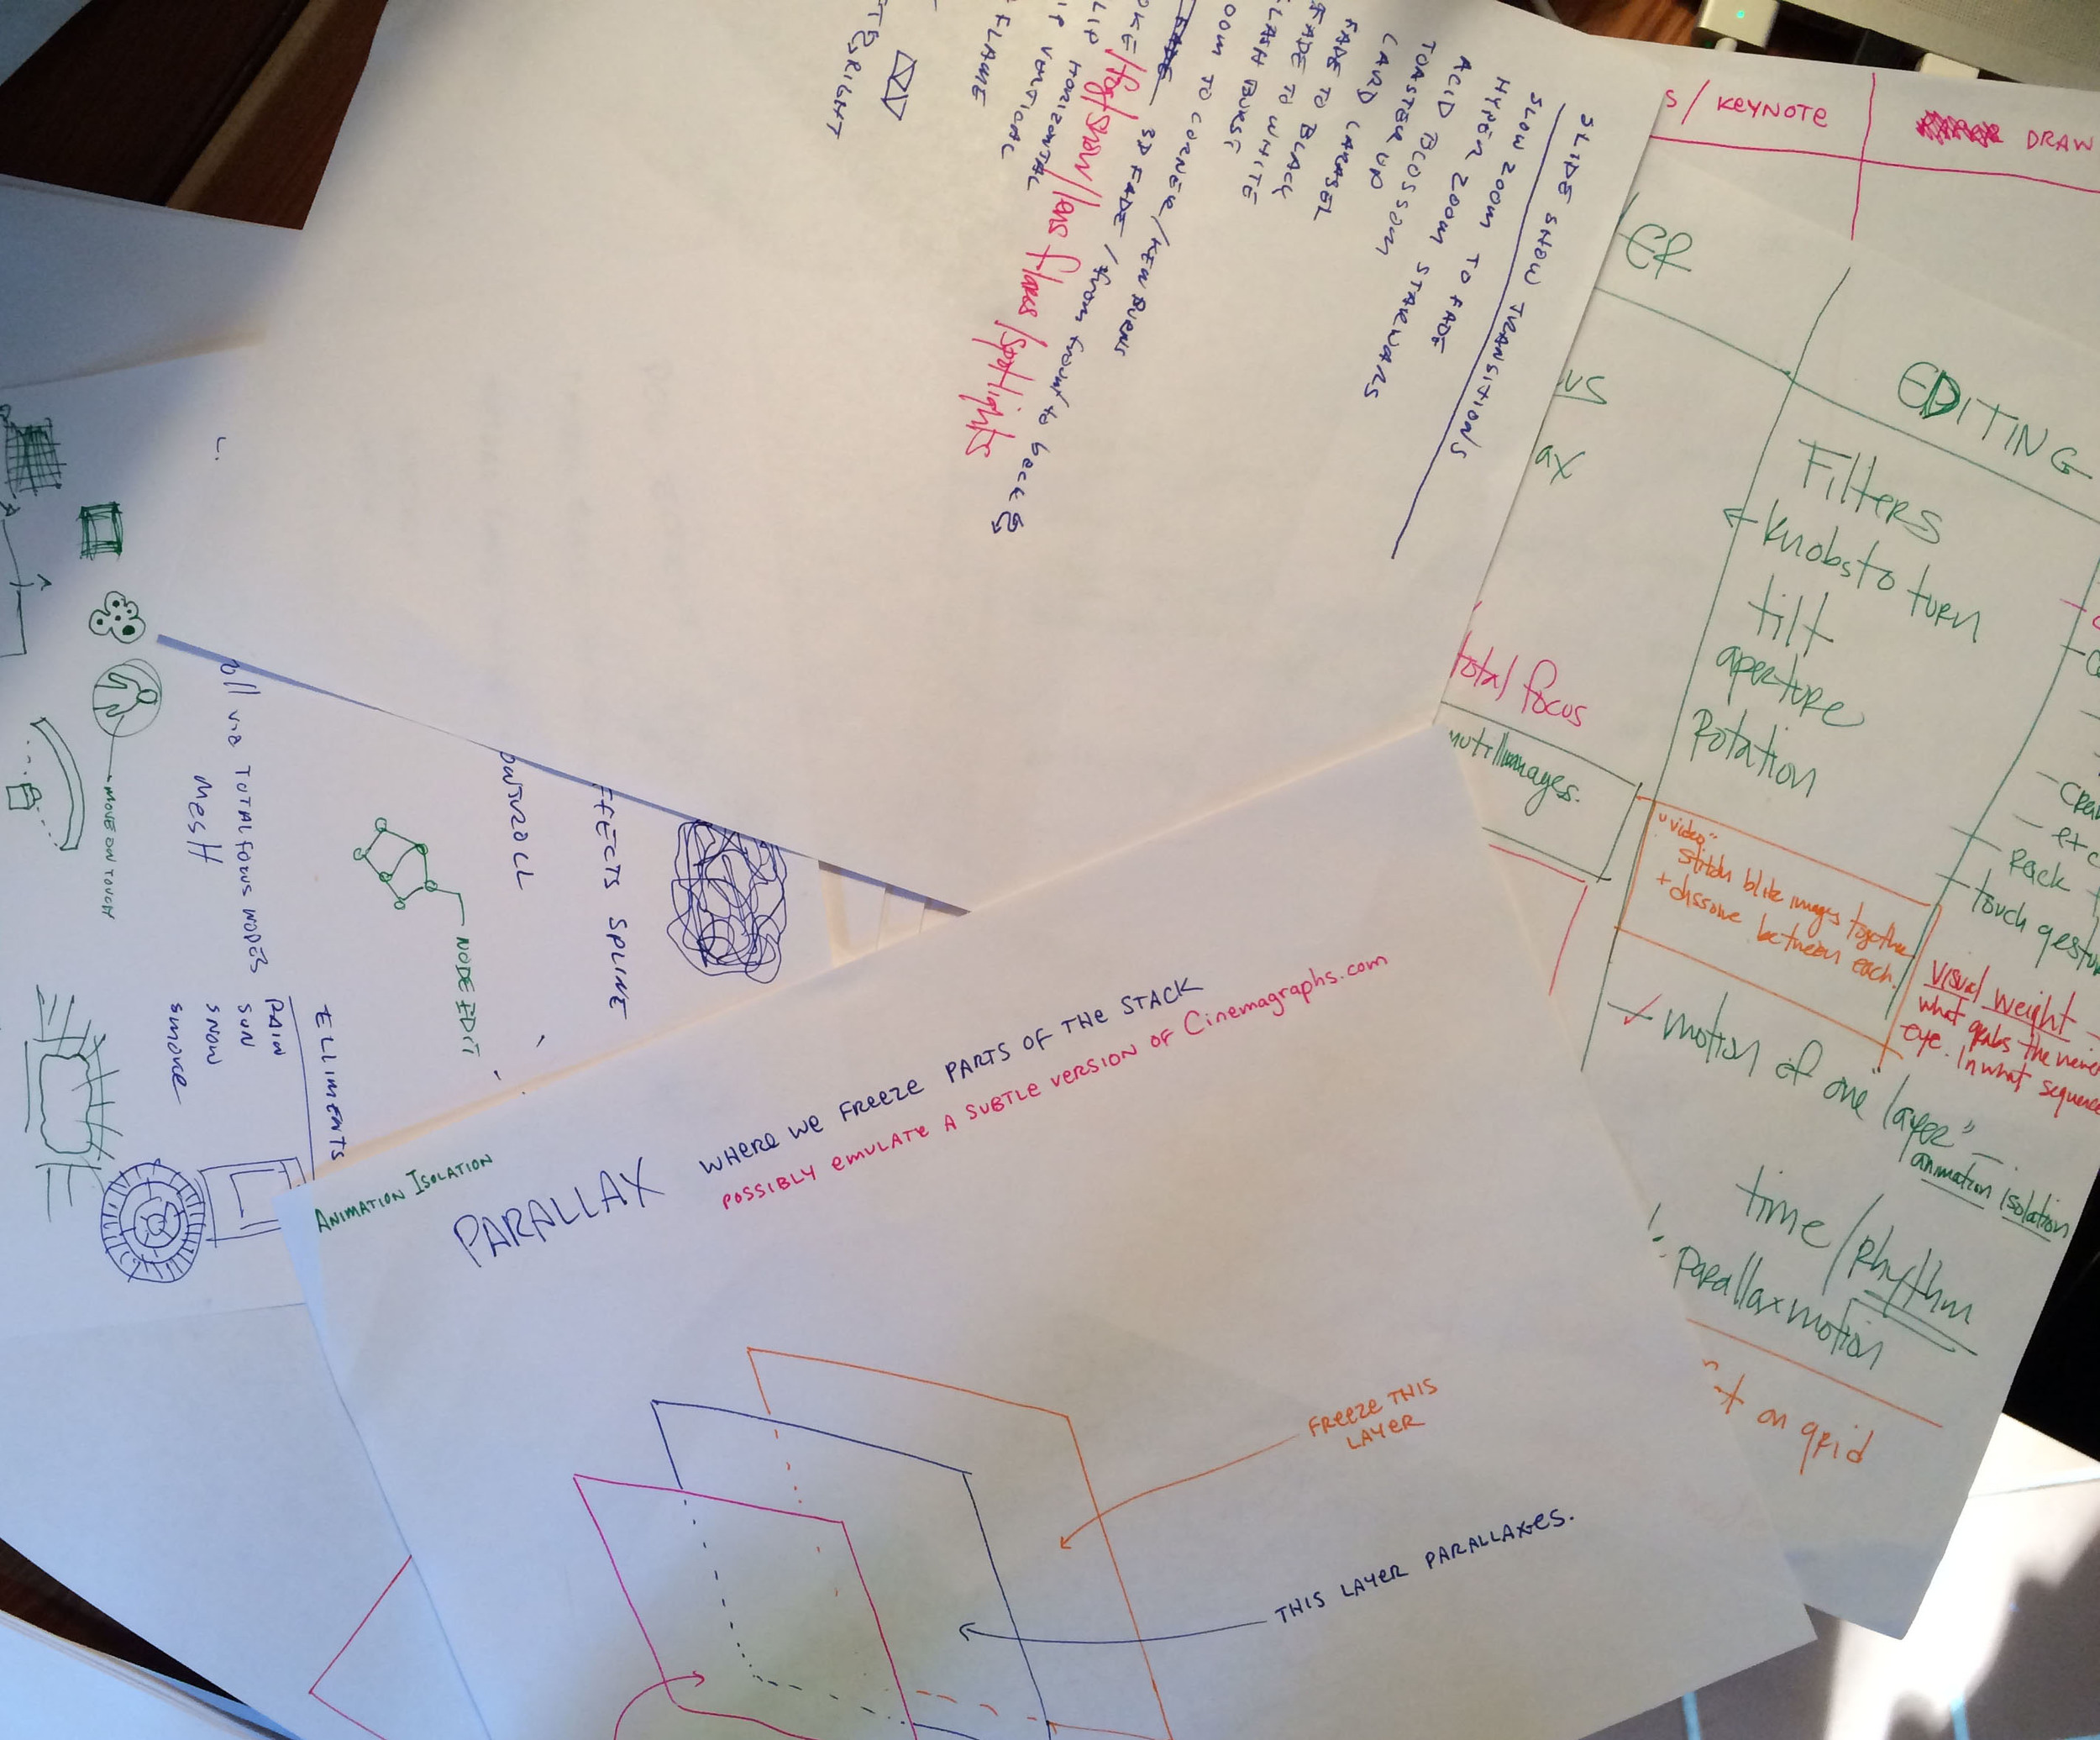 SLIDE SHOW TRANSITIONS
SLOW ZOOM TO FADE
HYPER ZOOM STARWARS
ACID BLOSSOM
TOASTER UP
CARD CARASEL
FADE TO BLACK
FADE TO WHITE
FLASH BURST
ZOOM TO CORNER/KEN BURNS
FADE 3D FADE / from front to back
/fog/snow/lens flares/spotlights
FLIP HORIZONTAL
FLIP VERTICAL
FLAME
RIGHT
/ KEYNOTE
DRAW
EDITING
Filters
knobs to turn
tilt
aperture
Rotation
total focus
"video"
stitch blite images together
+ dissolve between each.
etc
Rack
touch
Visual weight
what grabs the
eye. In what sequence
motion of one "layer" –
animation isolation
time/Rhythm
parallax motion
on grid
via TOTAL FOCUS MODES
MESH
MOVE ON TOUCH
NODE EDIT
SPLINE
ELLIMENTS
RAIN
SUN
SNOW
SMOKE
ANIMATION ISOLATION
PARALLAX
WHERE WE FREEZE PARTS OF THE STACK
POSSIBLY EMULATE A SUBTLE VERSION OF Cinemagraphs.com
FREEZE THIS
LAYER
THIS LAYER PARALLAXES.